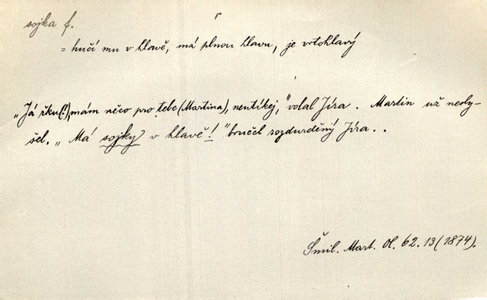 sojka f.
= hučí mu v hlavě, má plnou hlavu, je vrtohlavý
"Já řku(!), mám něco pro tebe (Martina), neutíkej," volal Jíra. Martin už nesly-
šel. "Má sojky v hlavě!" bručel rozdurděný Jíra..
Šmil. Mart. Ol. 62. 13 (1874).